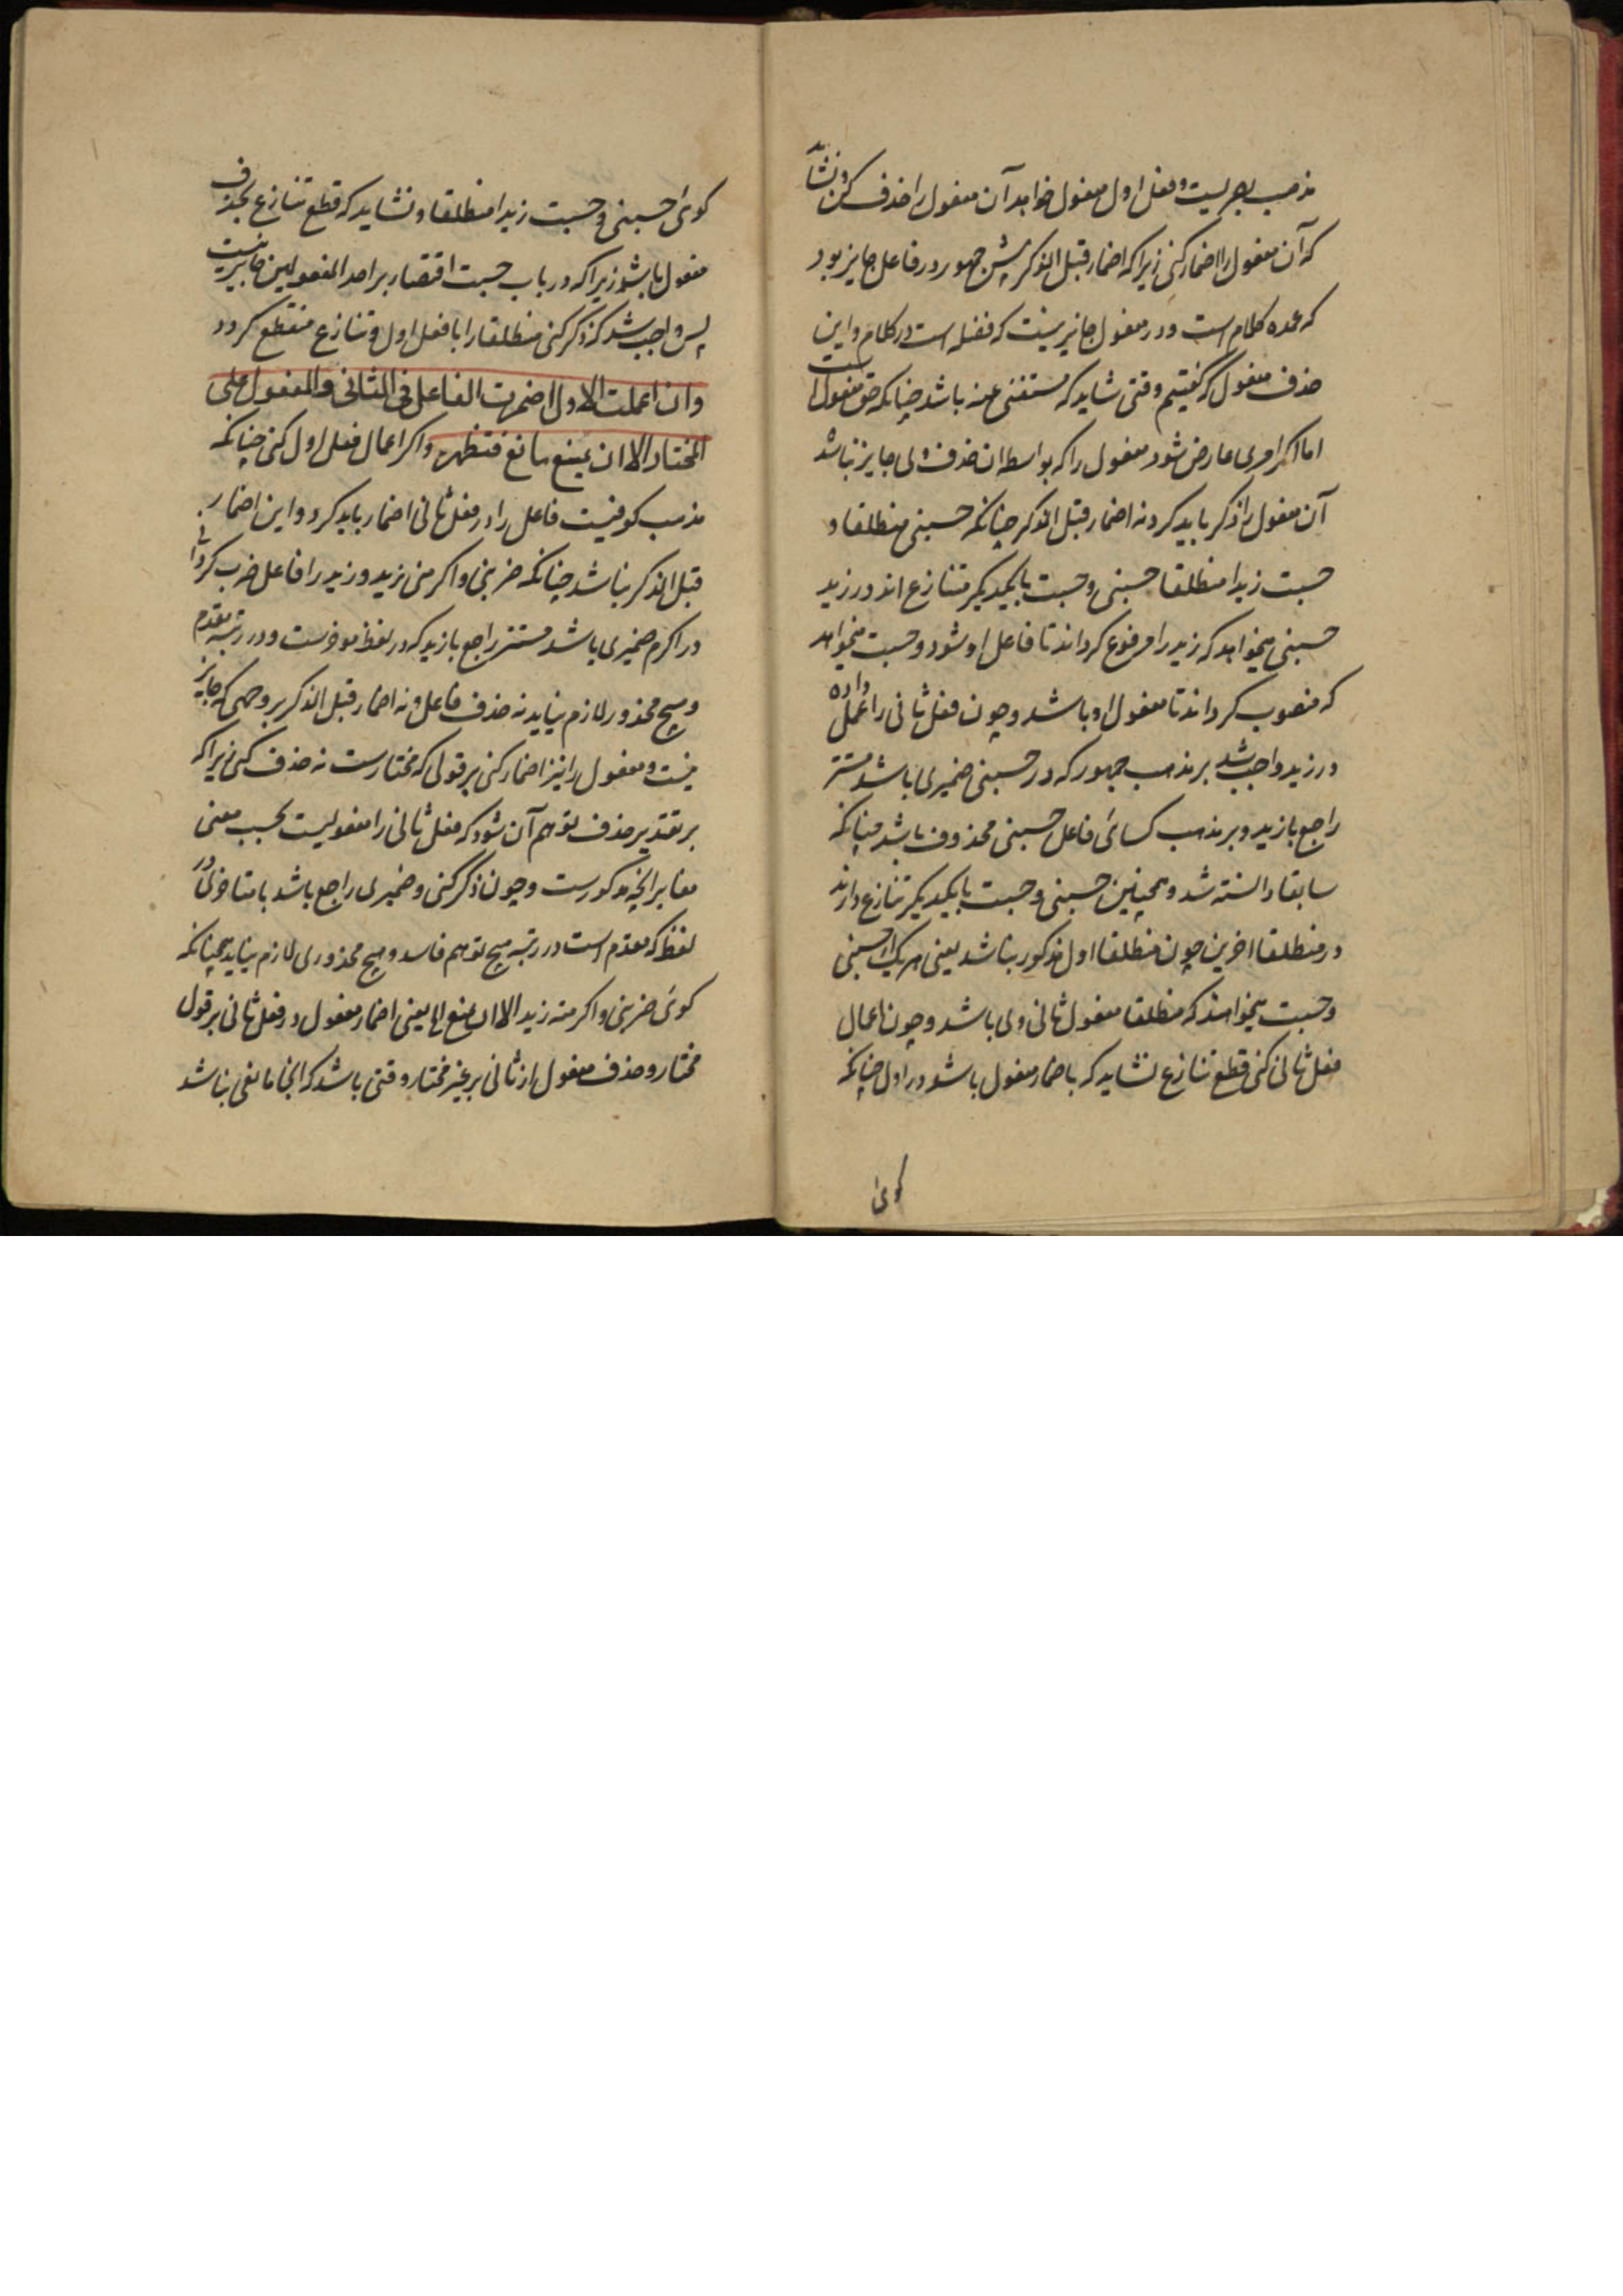 مذهب بصریست و فعل اول مفعول خواهد آن مفعول را حذف کن و نشاید
که آن مفعول را اضمار کنی زیرا که اضمار قبل الذکر پیش جمهور در فاعل جایز بود
که عمده کلام است و در مفعول جایز نیست که فضله است در کلام و این
حذف مفعول که گفتیم وقتی شاید که مستغنی عنه باشد چنانکه حق مفعول است
اما اگر امری عارض شود مفعول را که بواسطه ان حذف وی جایز نباشد
آن مفعول را ذکر باید کرد نه اضمار قبل الذکر چنانکه حسبنی منطلقا و
حسبت زیدا منطلقا حسبنی و حسبت با یکدیگر متنازع اند در زید
حسبنی میخواهد که زید را مرفوع گرداند تا فاعل او شود و حسبت میخواهد
که منصوب گرداند تا مفعول او باشد و چون فعل ثانی را عمل داده
در زید واجب شد بر مذهب جمهور که در حسبنی ضمیری باشد مستتر
راجع با زید و بر مذهب کسائی فاعل حسبنی محذوف باشد چنانکه
سابقا دانسته شد و همچنین حسبنی و حسبت با یکدیگر تنازع دارند
در منطلقا اخرین چون منطلقا اول مذکور نباشد یعنی هر یک از حسبنی
و حسبت میخواهند که منطلقا مفعول ثانی وی باشد و چون اعمال
فعل ثانی کنی قطع تنازع نشاید که باضمار مفعول باشد در اول چنانکه
کوئی
کوئی حسبنی و حسبت زیدا منطلقا و نشاید که قطع تنازع بحذف
مفعول باشد زیرا که در باب حسبت اقتصار بر احد المفعولین جایز نیست
پس واجب شد که ذکر کنی منطلقا را با فعل اول و تنازع منقطع کردد
وان اعملت الاول اضمرت الفاعل فی الثانی والمفعول علی
المختار الا ان یمنع مانع فتظهر و اکر اعمال فعل اول کنی چنانکه
مذهب کوفیست فاعل را در فعل ثانی اضمار باید کرد و این اضمار
قبل الذکر نباشد چنانکه ضربنی و اکرمنی زید و زید را فاعل ضرب کردا
در اکرم ضمیری باشد مستتر راجع با زید که در لفظ موخرست و در رتبه مقدم
و هیچ محذور لازم نیاید نه حذف فاعل و نه اضمار قبل الذکر بر وجهی که جایز
نیست و مفعول را نیز اضمار کنی بر قولی که مختارست نه حذف کنی زیرا که
بر تقدیر حذف توهم آن شود که فعل ثانی را مفعولیست بحسب معنی
مغایر آنچه مذکورست و چون ذکر کنی و ضمیری راجع باشد با متاخری در
لفظ که مقدم است در رتبه هیچ توهم فاسد و هیچ محذوری لازم نیاید چنانکه
کوئی ضربنی و اکرمته زید الا ان یمنع الا یعنی اضمار مفعول در فعل ثانی بر قول
مختار و حذف مفعول از ثانی بر غیر مختار وقتی باشد که انجا مانعی نباشد